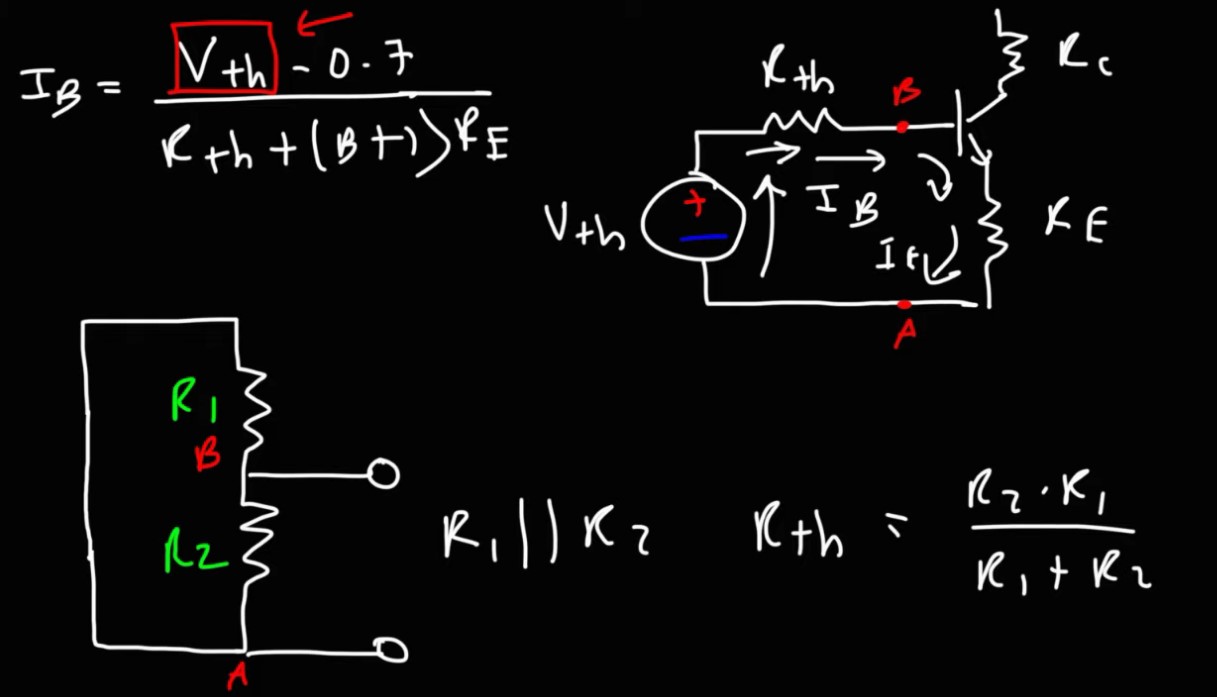 I_B = (V_th - 0.7) / (R_th + (B+1)R_E)
R_th
B
R_C
V_th
+
−
I_B
I_E
R_E
A
R_1
B
R_2
A
R_1 || R_2
R_th = (R_2 · R_1) / (R_1 + R_2)